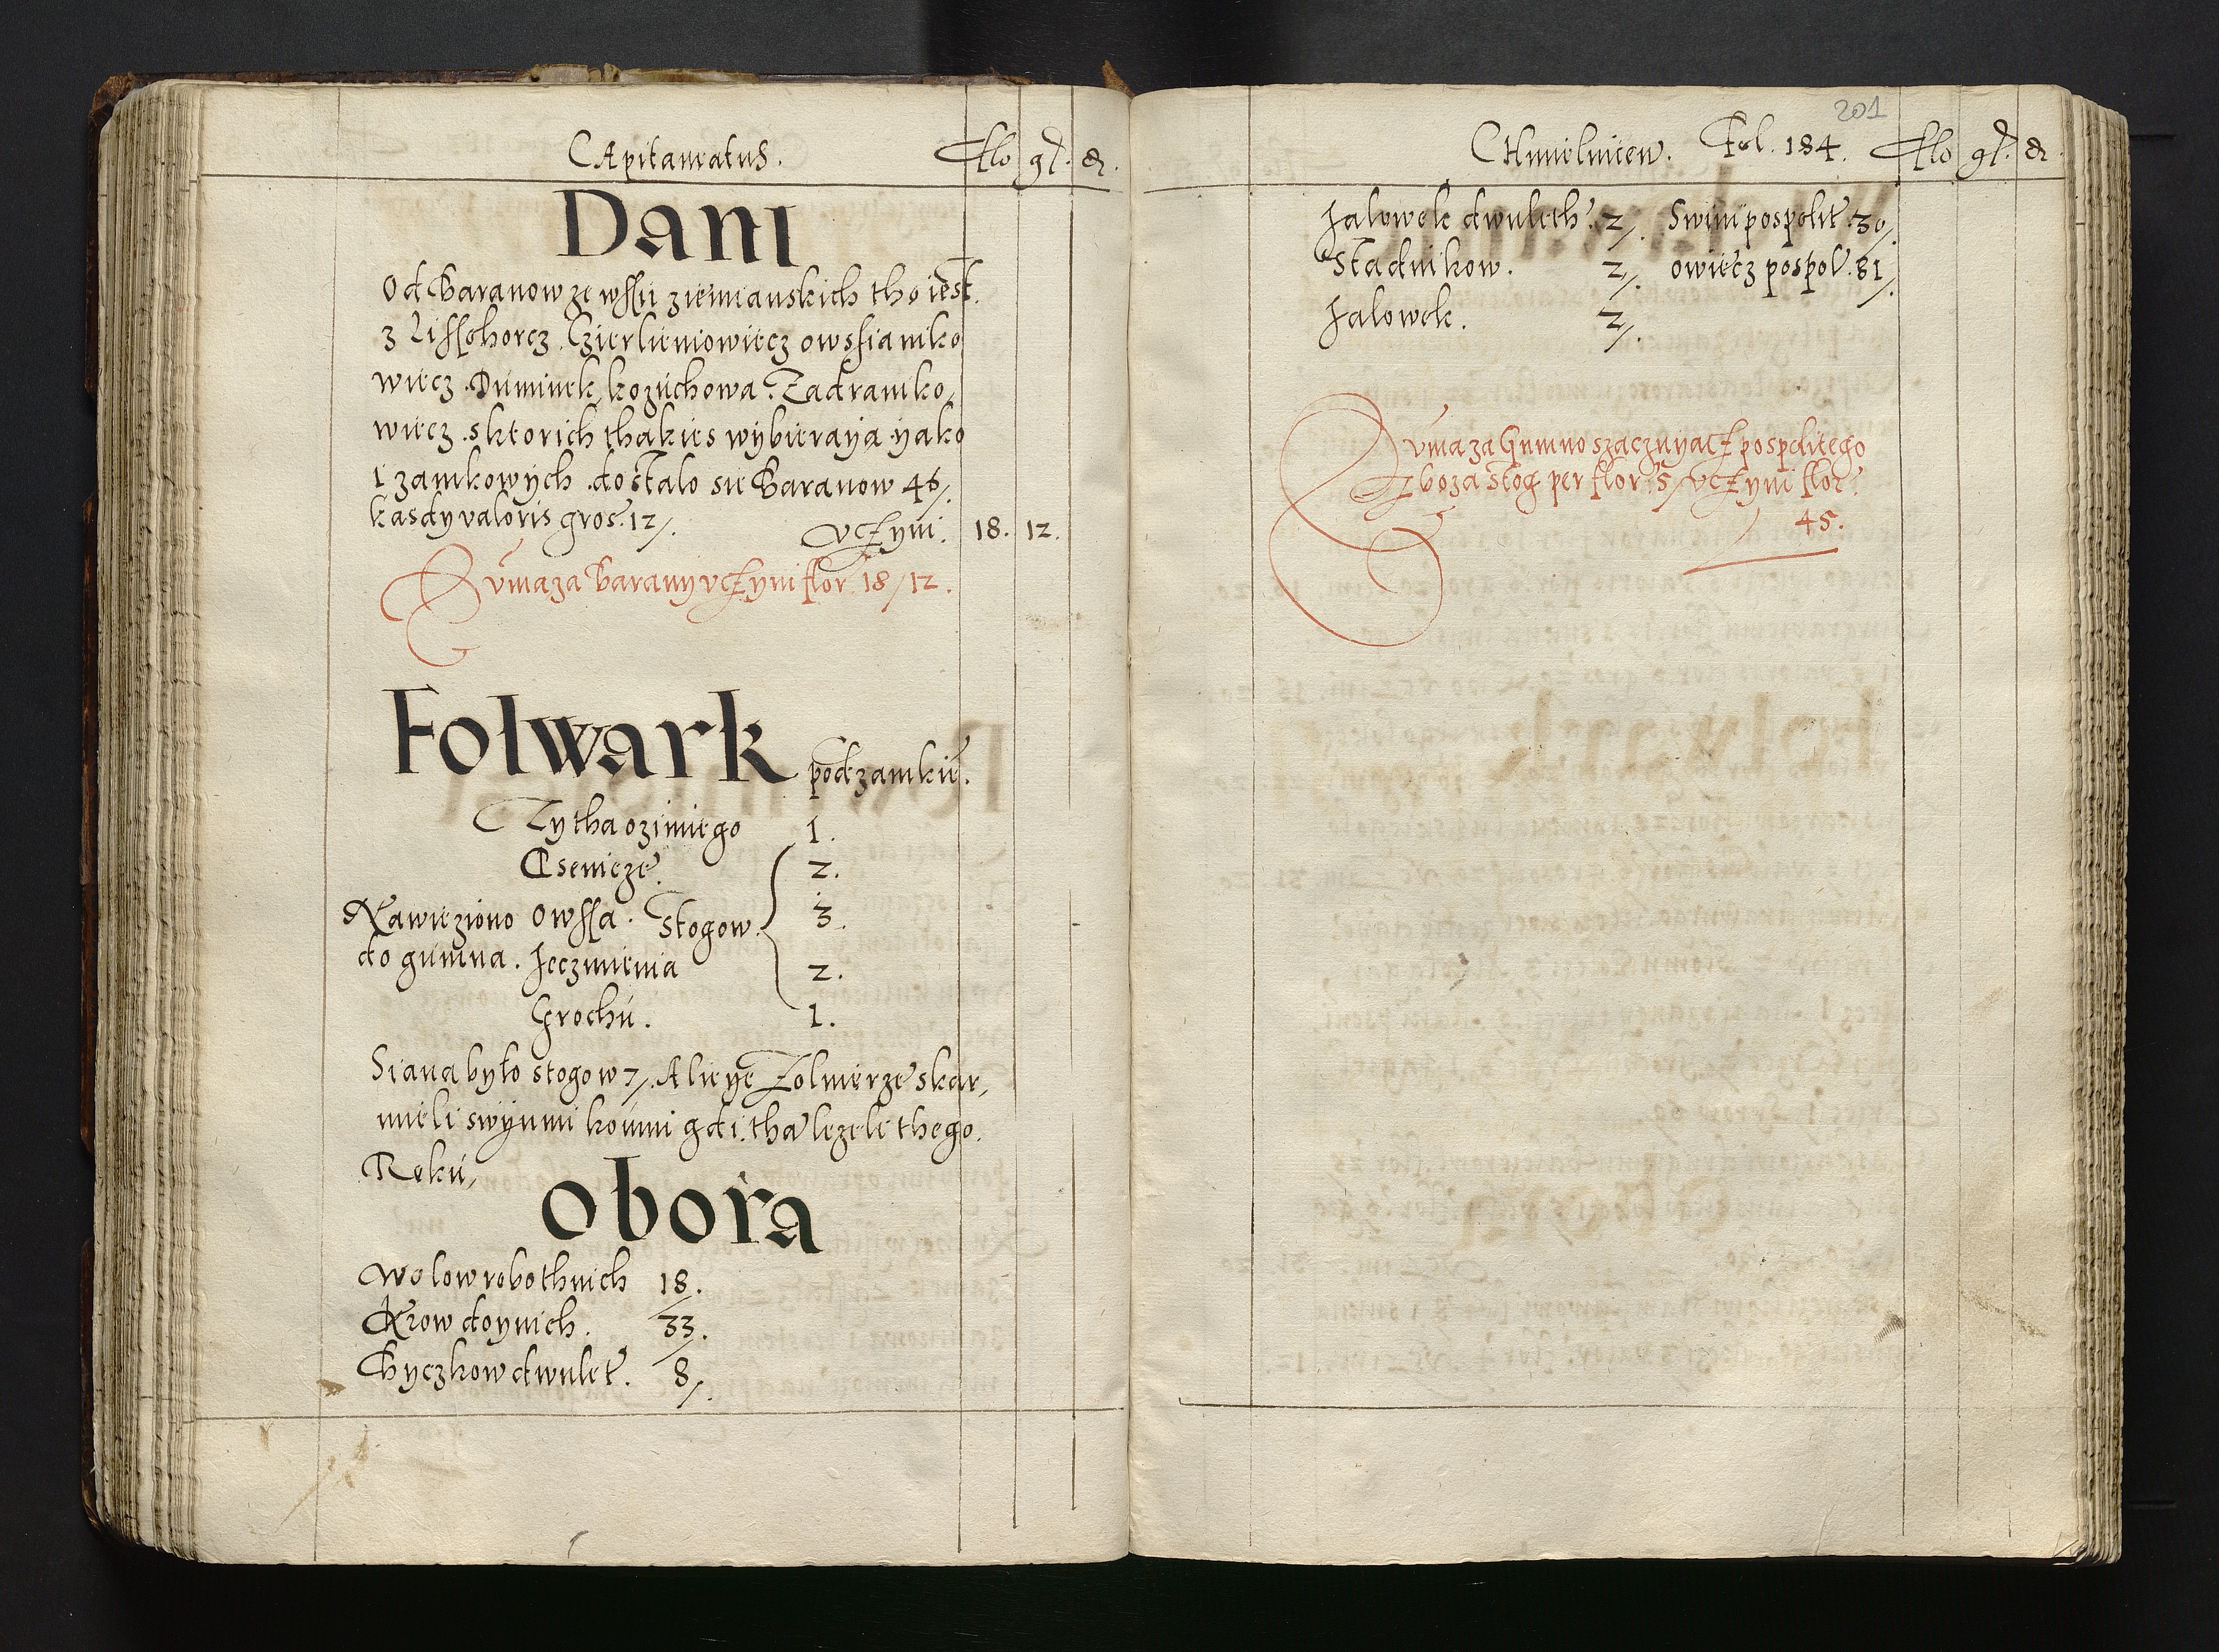 CApitaneatus. Flo gr. d.
Dani
Od Baranow ze wssii ziemianskich tho iest.
z Lissohorcz. Czierlieniowiecz owsfianiko
wiecz. Duminek, kozuchowa. Zadraniko,
wiecz. sktorich thakies wybieraya yako
i zamkowych. dostalo sie Baranow 46/.
kasdy valoris gros. 12/. vczyni. 18. 12.
Suma za Barany vczyni flor. 18/12.
Folwark podzamkie.
Zytha ozimiego 1.
Psenicze. 2.
Nawieziono owssa. stogow. 3.
do gumna. Jeczmienia 2.
Grochu. 1.
Siana było stogow 7/. Alie ye Zolnierze skar,
mieli swymi konmi gdi. tha lezeli thego.
Roku,
obora
Wolow robothnich 18.
Krow doynich. 33.
Byczkow dwulet. 8/.
201
CHmielnicen. Fol. 184. Flo gr. d.
Jalowek dwuleth. 2/. Swini pospolit. 30/.
Stadnikow. 2/. owiecz pospol. 81/.
Jalowek. 3/.
Suma za Gumno szaczuyacz pospolitego
Zboza stog per flor. 5/ vczyni flor.
45.